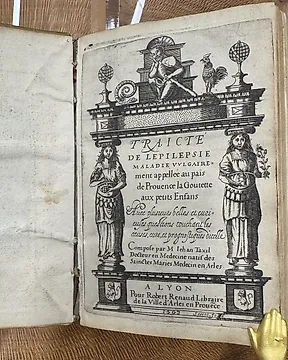 TRAICTE
DE LEPILEPSIE
MALADIE VVLGAIRE-
ment appellee au païs
de Prouence la Goutette
aux petits Enfans
Auec plusieurs belles et curi-
euses questions touchant les
causes, cure, et prognostiques dicelle.
Compose par M Iehan Taxil
Docteur en Medecine natif des
Sainctes Maries Medecin en Arles
A LYON
Pour Robert Renaud Libraire
de la Ville d'Arles en Prouēce